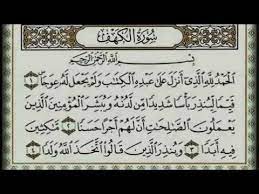 سُورَةُ الْكَهْفِ
بِسْمِ اللَّهِ الرَّحْمَٰنِ الرَّحِيمِ
الْحَمْدُ لِلَّهِ الَّذِي أَنزَلَ عَلَىٰ عَبْدِهِ الْكِتَابَ وَلَمْ يَجْعَل لَّهُ عِوَجًا ١
قَيِّمًا لِّيُنذِرَ بَأْسًا شَدِيدًا مِّن لَّدُنْهُ وَيُبَشِّرَ الْمُؤْمِنِينَ الَّذِينَ
يَعْمَلُونَ الصَّالِحَاتِ أَنَّ لَهُمْ أَجْرًا حَسَنًا ٢ مَّاكِثِينَ
فِيهِ أَبَدًا ٣ وَيُنذِرَ الَّذِينَ قَالُوا اتَّخَذَ اللَّهُ وَلَدًا ٤